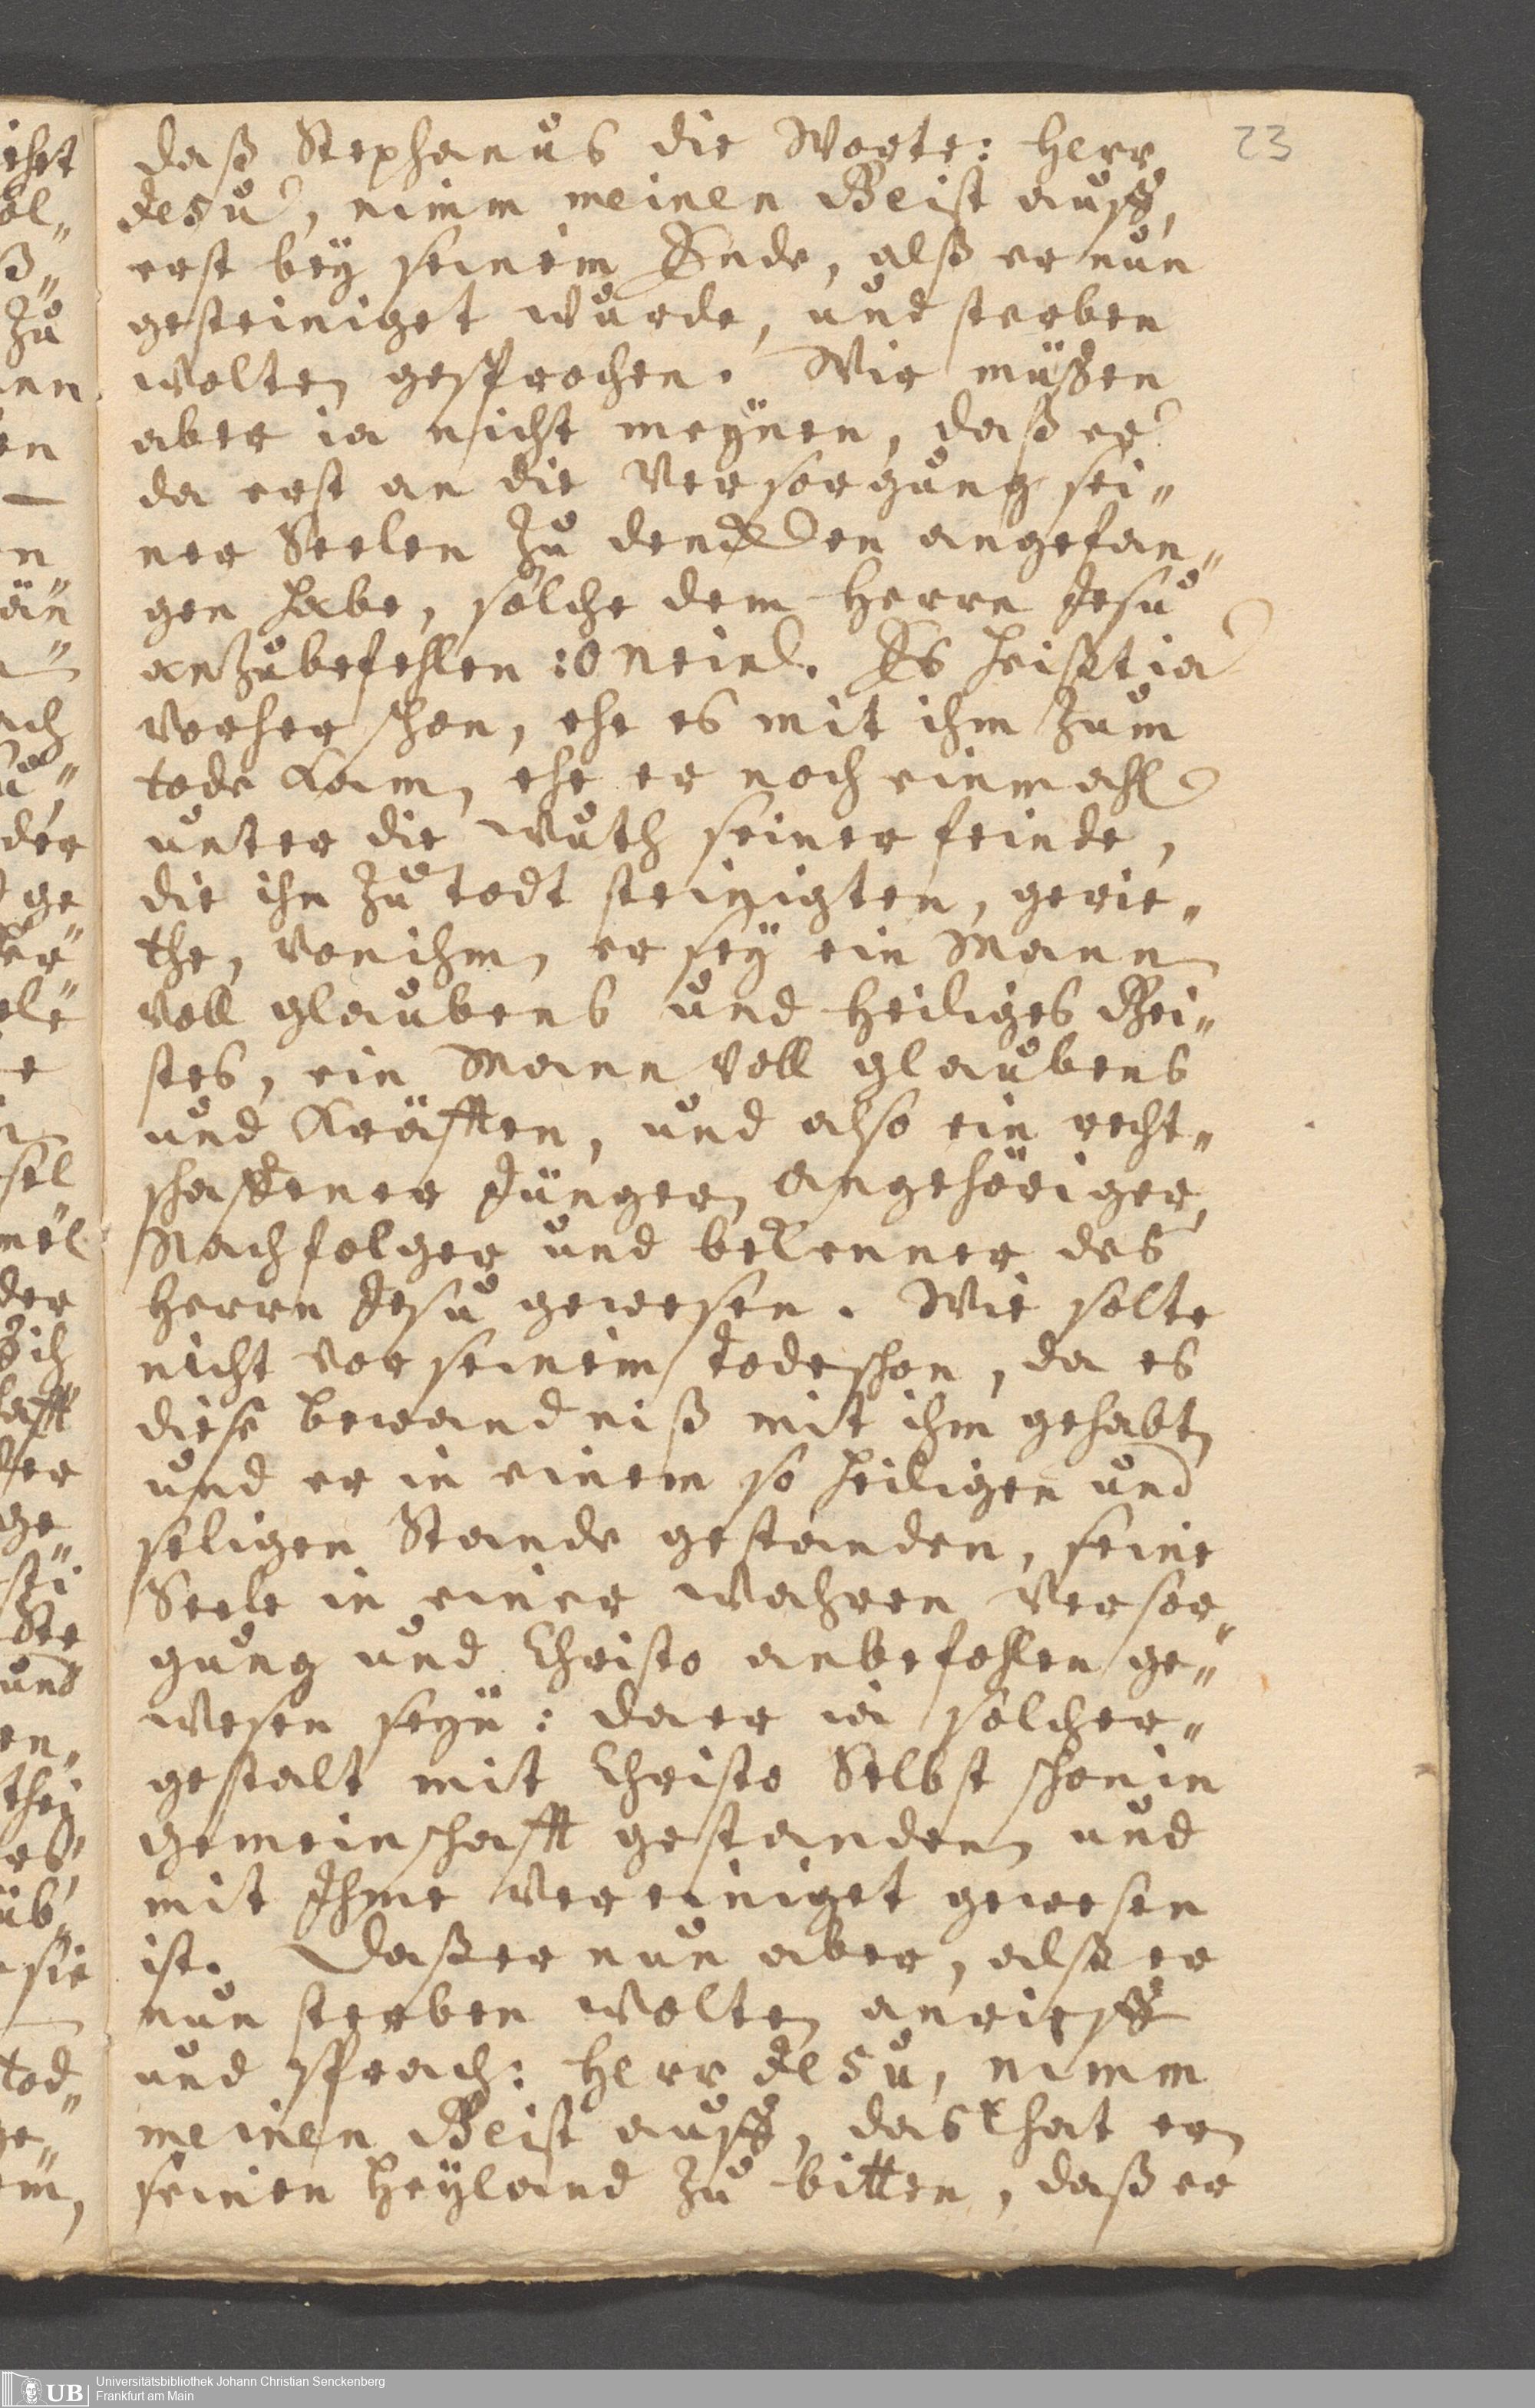 23
daß Stephanus die Worte: Herr
Jesu, nimm meinen Geist auff,
erst bey seinem Ende, alß er nun
gesteiniget wurde, und sterben
wolte, gesprochen. Wir müßen
aber ia nicht meynen, daß er
da erst an die Versorgung sei„
ner Seelen zu dencken angefan„
gen habe, solche dem Herrn Jesu
anzubefehlen: O nein. Es heißt ia
vorher schon, ehe es mit ihm zum
tode kam, ehe er noch einmahl
unter die Wuth seiner feinde,
die ihn zu todt steinigten, gerie„
the, von ihm, er sey ein Mann
voll glaubens und Heiliges Gei„
stes, ein Mann voll glaubens
und Kräfften, und also ein recht„
schaffener Jünger, angehöriger,
Nachfolger und bekenner des
Herrn Jesu gewesen. Wie solte
nicht vor seinem tode schon, da es
diese bewandniß mit ihm gehabt,
und er in einem so heiligen und
seligen Stande gestanden, seine
Seele in einer wahren Versor„
gung und Christo anbefohlen ge„
wesen seyn: da er ia solcher„
gestalt mit Christo Selbst schon in
gemeinschafft gestanden, und
mit Ihme vereiniget gewesen
ist. Daß er nun aber, alß er
nun sterben wolte, anrieff
und sprach: Herr Jesu, nimm
meinen Geist auff, das that er,
seinen Heyland zu bitten, daß er
Universitätsbibliothek Johann Christian Senckenberg
Frankfurt am Main
UB